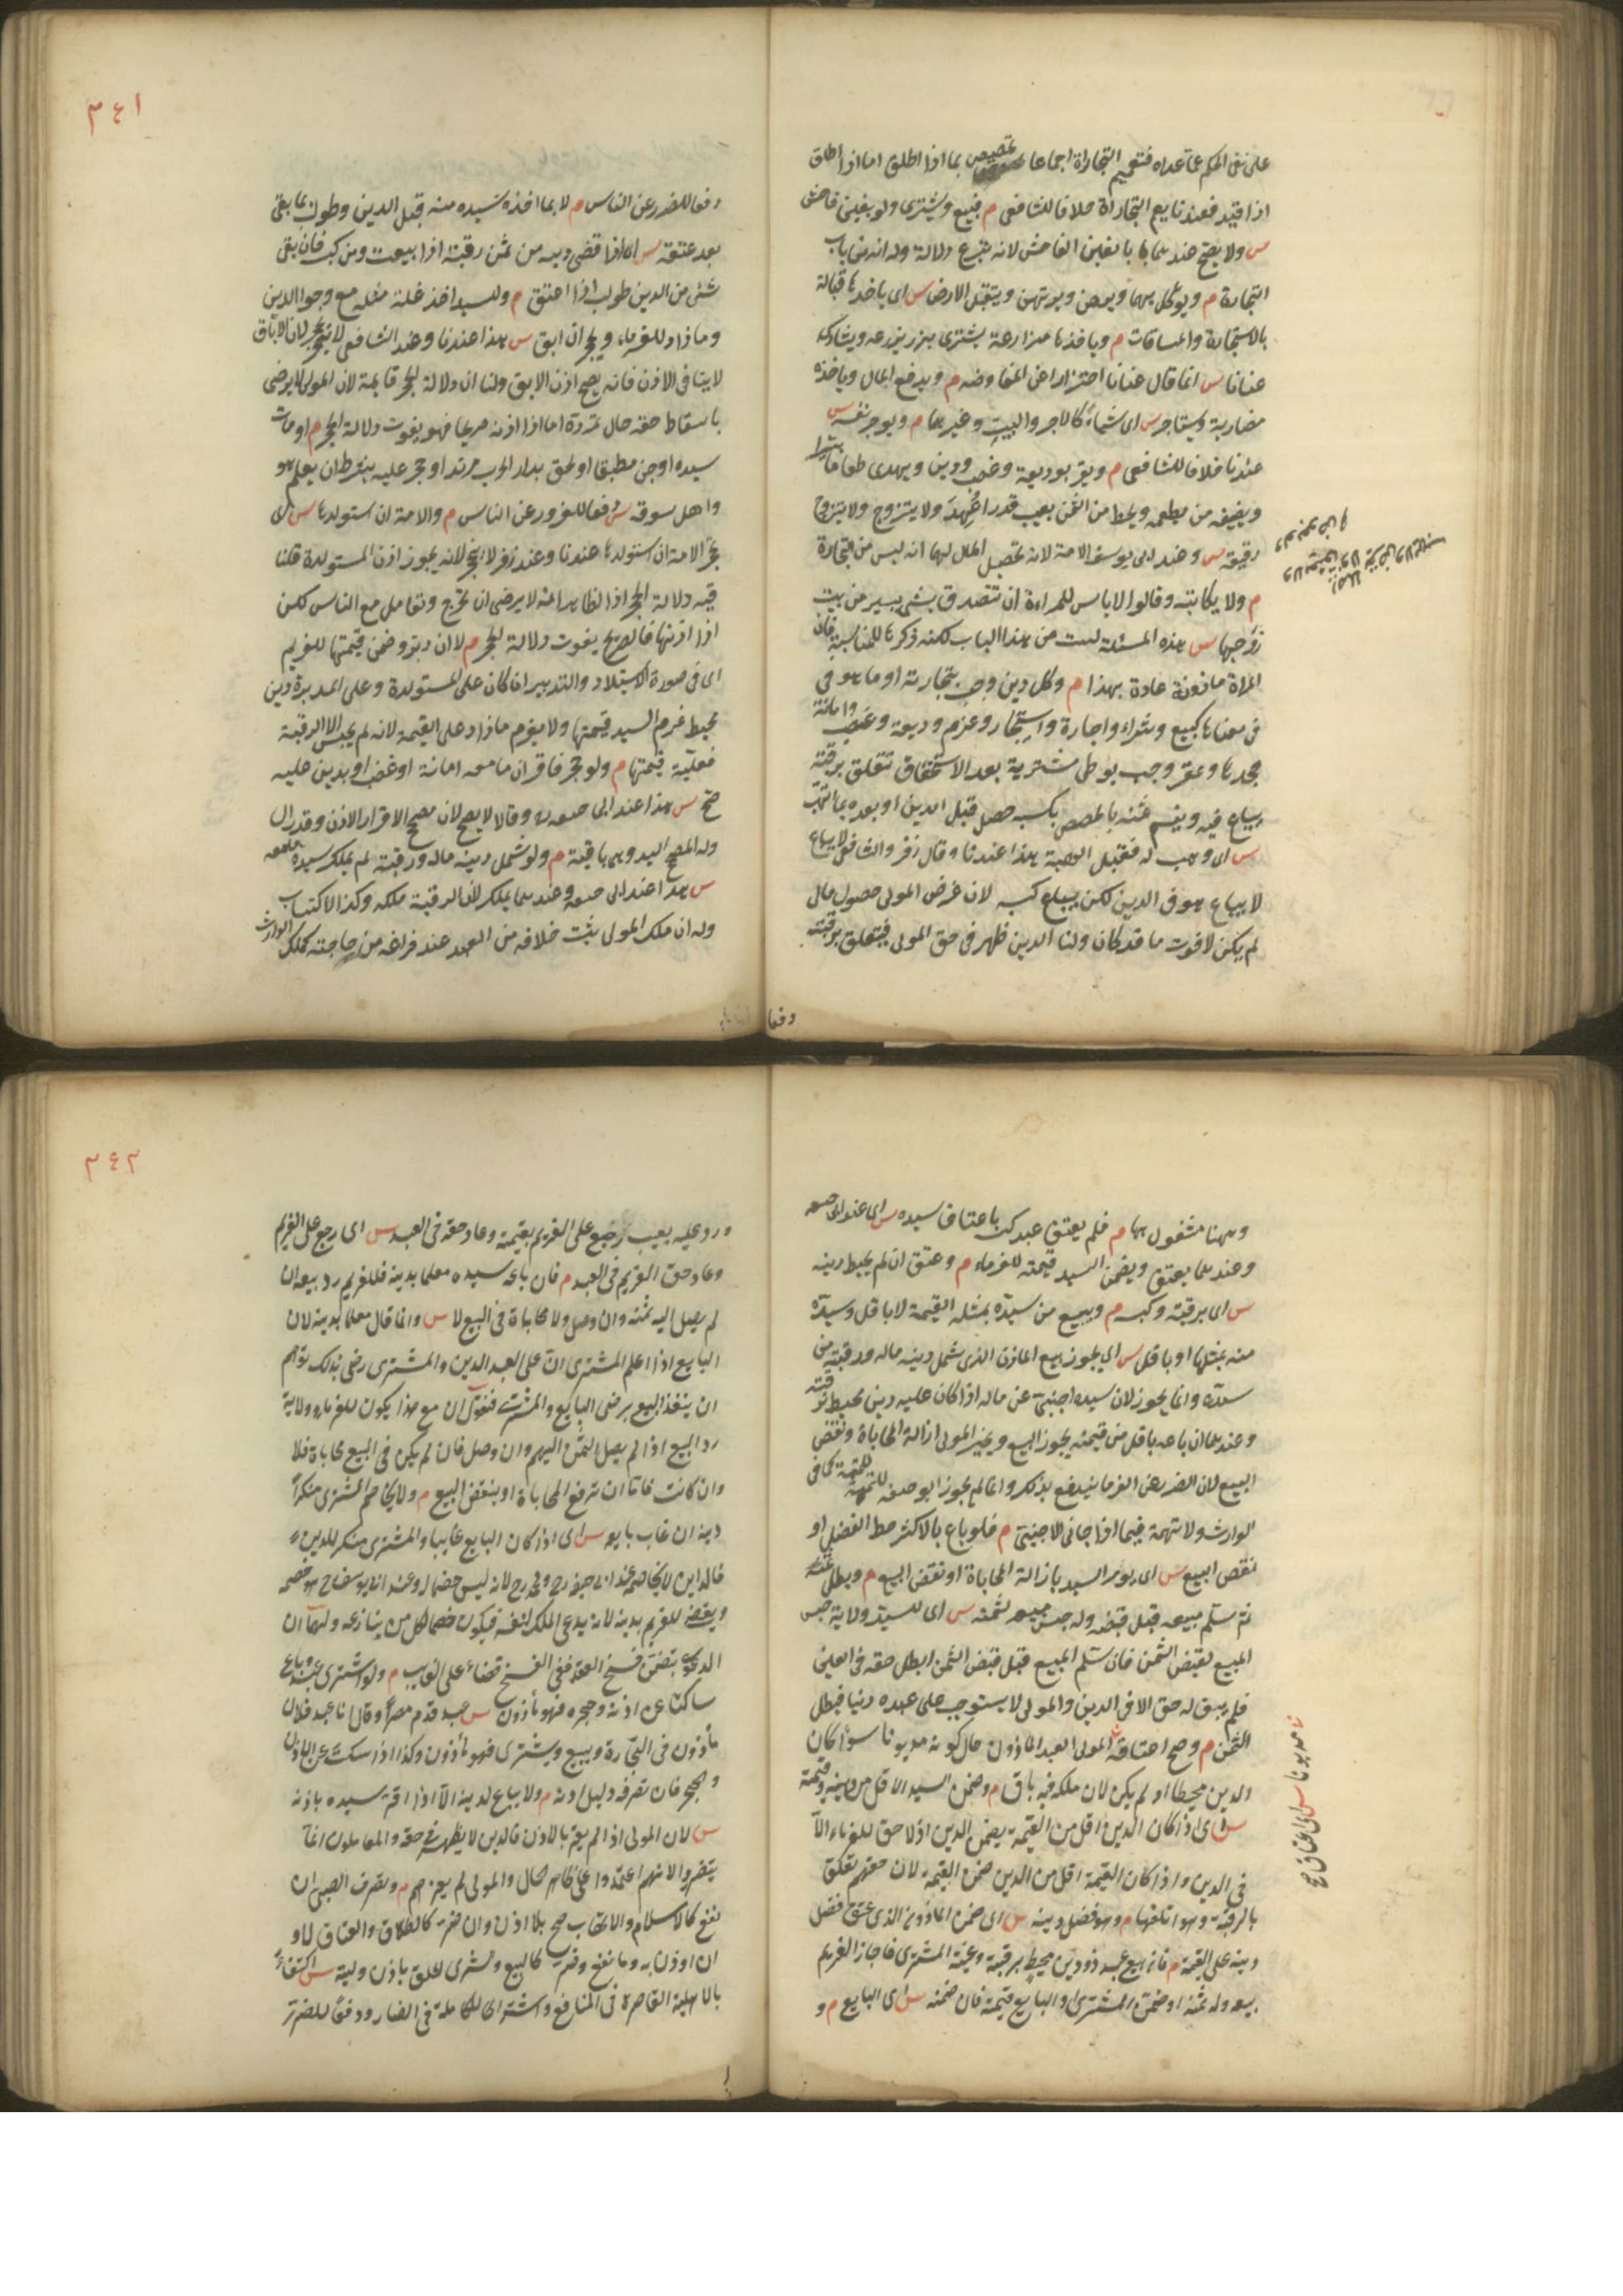 على نفى الحكم عما عداه فتعميم التجاراة اجماعا تخصيص بما اذا اطلق اما اذا اطلق
اذا قيد فعندنا يعم التجاراة خلافا للشافعى م فيبيع ويشترى ولو بغبن فاحش
س ولا يصح عندهما بالغبن الفاحش لانه تبرع دلالة وله انه من باب
التجارة م ويوكل بهما ويرهن ويرتهن ويتقبل الارض س اى ياخذها قبالة
بالاستجارة والمساقات م وياخذها مزارعة ويشترى بزرا يزرعه ويشارك
عنانا س انما قال عنانا احترازا عن المفاوضه م ويدفع المال وياخذه
مضاربة ويستاجر س اى شياء كالاجر والبيت وغيرهما م ويوجر نفسه س
عندنا خلافا للشافعى م ويقر بوديعة وغصب ودين ويهدى طعاما يسيرا
ويضيف من يطعمه ويحط من الثمن بعيب قدرا عهد ولا يتزوج ولا يزوج
رقيقه س وعند ابى يوسف الامة لانه تحصيل المال لهما انه ليس من التجارة
م ولا يكاتبه وقالوا لا باس للمراءة ان تتصدق بشى يسير من بيت
زوجها س هذه المسئلة ليست من هذا الباب لكنه ذكرها للمناسبة فان
المراة ماذونة عادة بهذا م وكل دين وجب بتجارته او ما هو فى
فى معناها كبيع وشراء واجارة واستيجار وغرم وديعة وغصب وامانة
جحدها وعقر وجب بوطى مشترية بعد الاستحقاق تتعلق برقبته
يباع فيه ويقسم ثمنه بالحصص بكسبه حصل قبل الدين او بعده بما اتهب
س اى وهب له فقبل الهبة هذا عندنا وقال زفر والشافعى لا يباع
لا يباع هو فى الدين لكن يباع كسبه لان غرض المولى حصول مال
لم يكن لا فوت ما قد كان ولنا الدين ظهر فى حق المولى فيتعلق برقبته
دفعا
٣٤١
دفعا للضرر عن الناس م لا بما اخذه سيده منه قبل الدين وطولب بما بقى
بعد عتقه س اى اذا قضى دينه من ثمن رقبته اذا بيعت ومن كسبه فان بقى
شئ من الدين طولب اذا اعتق م وللسيد اخذ غلة مثله مع وجوا الدين
وما زاد للغرماء ويحجر ان ابق س هذا عندنا وعند الشافعى لا يحجر لان الاباق
لا ينافى الاذن فانه يصح اذن الابق ولنا ان دلالة الحجر قايمة لان المولى لا يرضى
باسقاط حقه حال تمرده اما اذا اذنه صريحا فهو يفوت دلالة الحجر م او مات
سيده او جن مطبقا او لحق بدار الحرب مرتد او حجر عليه بشرط ان يعلم هو
واهل سوقه س دفعا للغرور عن الناس م والامة ان استولدها س اى
تحجر الامة ان استولدها عندنا وعند زفر لا تحجر لانه يجوز اذن المستولدة قلنا
فيه دلالة الحجر اذا الظاهر انه لا يرضى ان تخرج وتعامل مع الناس لكن
اذا اذنها فالصريح يفوت دلالة الحجر م لا ان دبر وضمن قيمتها للغريم
اى فى صورة الاستيلاد والتدبير ان كان على المستولدة وعلى المدبرة دين
محيط غرم السيد قيمتها ولا يغرم ما زاد على القيمة لانه لم يحبس الا الرقبة
فعليه قيمتها م ولو حجر فاقر ان ما معه امانة او غصب او بدين عليه
صح س هذا عند ابى حنيفة وقالا لا يصح لان مصحح الاقرار الاذن وقد زال
وله المصحح اليد وهى باقية م ولو شمل دينه ماله ورقبته لم يملك سيده ما معه
س هذا عند ابى حنيفة وعندهما يملك لان الرقبة ملكه وكذا الاكتساب
وله ان ملك المولى يثبت خلافه من العبد عند فراغه من حاجته كملك الوارث
وههنا مشغول بها م فلم يعتق عبد كسبه باعتاق سيده س اى عند ابى حنيفة
وعندهما يعتق ويضمن السيد قيمته للغرماء م وعتق ان لم يحيط دينه
س اى برقبته وكسبه م ويبيع من سيده بمثل القيمة لا باقل وسيده
منه بمثلها او باقل س اى يجوز بيع الماذون الذى شمل دينه ماله ورقبته من
سيده وانما يجوز لان سيده اجنبى عن ماله اذا كان عليه دين محيط برقبته
وعندهما ان باعه باقل من قيمته يجوز البيع ويخير المولى ازالة المحاباة ونقض
البيع لان الضرر عن الغرما يندفع بذلك وانما لم يجوز ابو حنيفه للتهمة كما فى
الوارث ولا تهمة فيما اذا حابى الاجنبى م فلو باع بالاكثر حط الفضل او
نقض البيع س اى يؤمر السيد بازالة المحاباة او نقض البيع م وبطل ثمنه
ثم سلم مبيعه قبل قبضه وله حبس مبيعه لثمنه س اى للسيد ولاية حبس
المبيع لقبض الثمن فان سلم المبيع قبل قبض الثمن ابطل حقه فى العين
فلم يبق له حق الا فى الدين والمولى لا يستوجب على عبده دينا فبطل
الثمن م وصح اعتاقه المولى العبد الماذون حال كونه مديونا سواء كان
الدين محيطا او لم يكن لان ملكه فيه باق م وضمن السيد الاقل من دينه وقيمته
س اى اذا كان الدين اقل من القيمة يضمن الدين اذ لا حق للغرماء الا
فى الدين واذا كان القيمة اقل من الدين ضمن القيمة لان حقهم تعلق
بالرقبة وهو اتلفها م وهو فضل دينه س اى ضمن الماذون الذى عتق فضل
دينه على القيمة م فان بيع عبد ذو دين محيط برقبته وغيبه المشترى فاجاز الغريم
بيعه وله ثمنه او ضمن المشترى او البايع قيمته فان ضمنه س اى البايع م و
مديونا س اى اعتاق صح
٣٤٢
ورد عليه بعيب رجع على الغريم بقيمته وعاد حقه فى العبد س اى رجع على الغريم
وعاد حق الغريم فى العبد م فان باعه سيده معلما بدينه فللغريم رد بيعه ان
لم يصل اليه ثمنه وان وصل ولا محاباة فى البيع لا س وانما قال معلما بدينه لان
البايع اذا اعلم المشترى ان على العبد الدين والمشترى رضى بذلك توهم
ان ينفذ البيع برضى البايع والمشترى فنقول ان مع هذا يكون للغرماء ولاية
رد البيع اذا لم يصل الثمن اليهم وان وصل فان لم يكن فى البيع محاباة فلا
وان كانت فاما ان ترفع المحاباة او ينقض البيع م ولا يخاصم المشترى منكرا
دينه ان غاب بايعه س اى اذا كان البايع غايبا والمشترى منكر للدين
فالداين لا يخاصمه عند ابى حنيفة رح ومحمد رح لانه ليس خصما له وعند ابى يوسف رح هو خصمه
ويقضى للغريم بدينه لانه يدعى الملك لنفسه فيكون خصما لكل من ينازعه ولهما ان
الدعوى يتضمن فسخ العقد ففى الفسخ قضاء على الغايب م ولو اشترى عبد وباع
ساكتا عن اذنه وحجره فهو مأذون س عبد قدم مصرا وقال انا عبد فلان
مأذون فى التجارة ويبيع ويشترى فهو مأذون وكذا اذا سكت عن الاذن
والحجر فان تصرفه دليل اذنه م ولا يباع لدينه الا اذا اقر سيده باذنه
س لان المولى اذا لم يقر بالاذن فالدين لا يظهر فى حقه والمعاملون انما
يتضرروا لانهم اعتمدوا على ظاهر الحال والمولى لم يغرهم م وتصرف الصبى ان
نفع كالاسلام والاتهاب صح بلا اذن وان ضر كالطلاق والعتاق لا و
ان اذن به وما نفع وضر كالبيع والشرى لعلق باذن وليه س اكتفاء
بالاهلية القاصرة فى المنافع واشتراط الكاملة فى الضار ودفعا للضرر